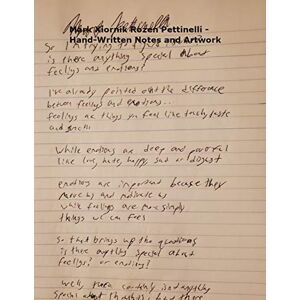 Mark Xiornik Rozen Pettinelli -
Hand-Written Notes and Artwork
So I'm trying to figure out
is there anything special about
feelings and emotions?
I've already pointed out the difference
between feelings and emotions...
feelings are things you feel like touchy taste
and smell
While emotions are deep and powerful
like love, hate, happy, sad or disgust
emotions are important because they
move us and motivate us
while feelings are more simply
things we can feel
So that brings up the questions
is there anything special about
feelings? or emotions?
Well, there certainly is anything
special about